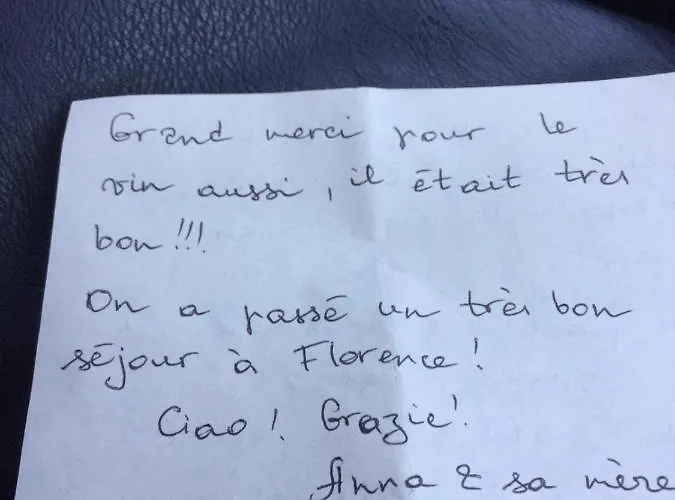 Grand merci pour le
vin aussi, il était très
bon!!!
On a passé un très bon
séjour à Florence!
Ciao! Grazie!
Anna & sa mère